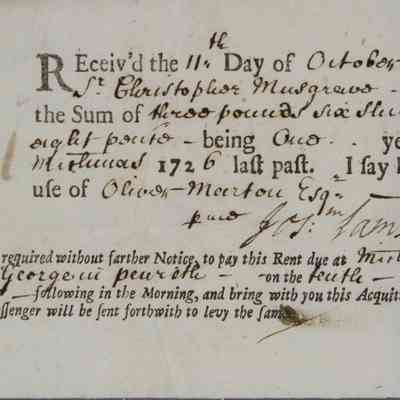 REceiv'd the 11th Day of October
Sr. Christopher Musgrave -
the Sum of three pounds six
eight pence - being One . ye
Michmas 1726 last past. I say
use of Oliver Marton Esqr
required without farther Notice, to pay this Rent due at
George in penreth - on the tenth -
- following in the Morning, and bring with you this Acquit
ssenger will be sent forthwith to levy the same